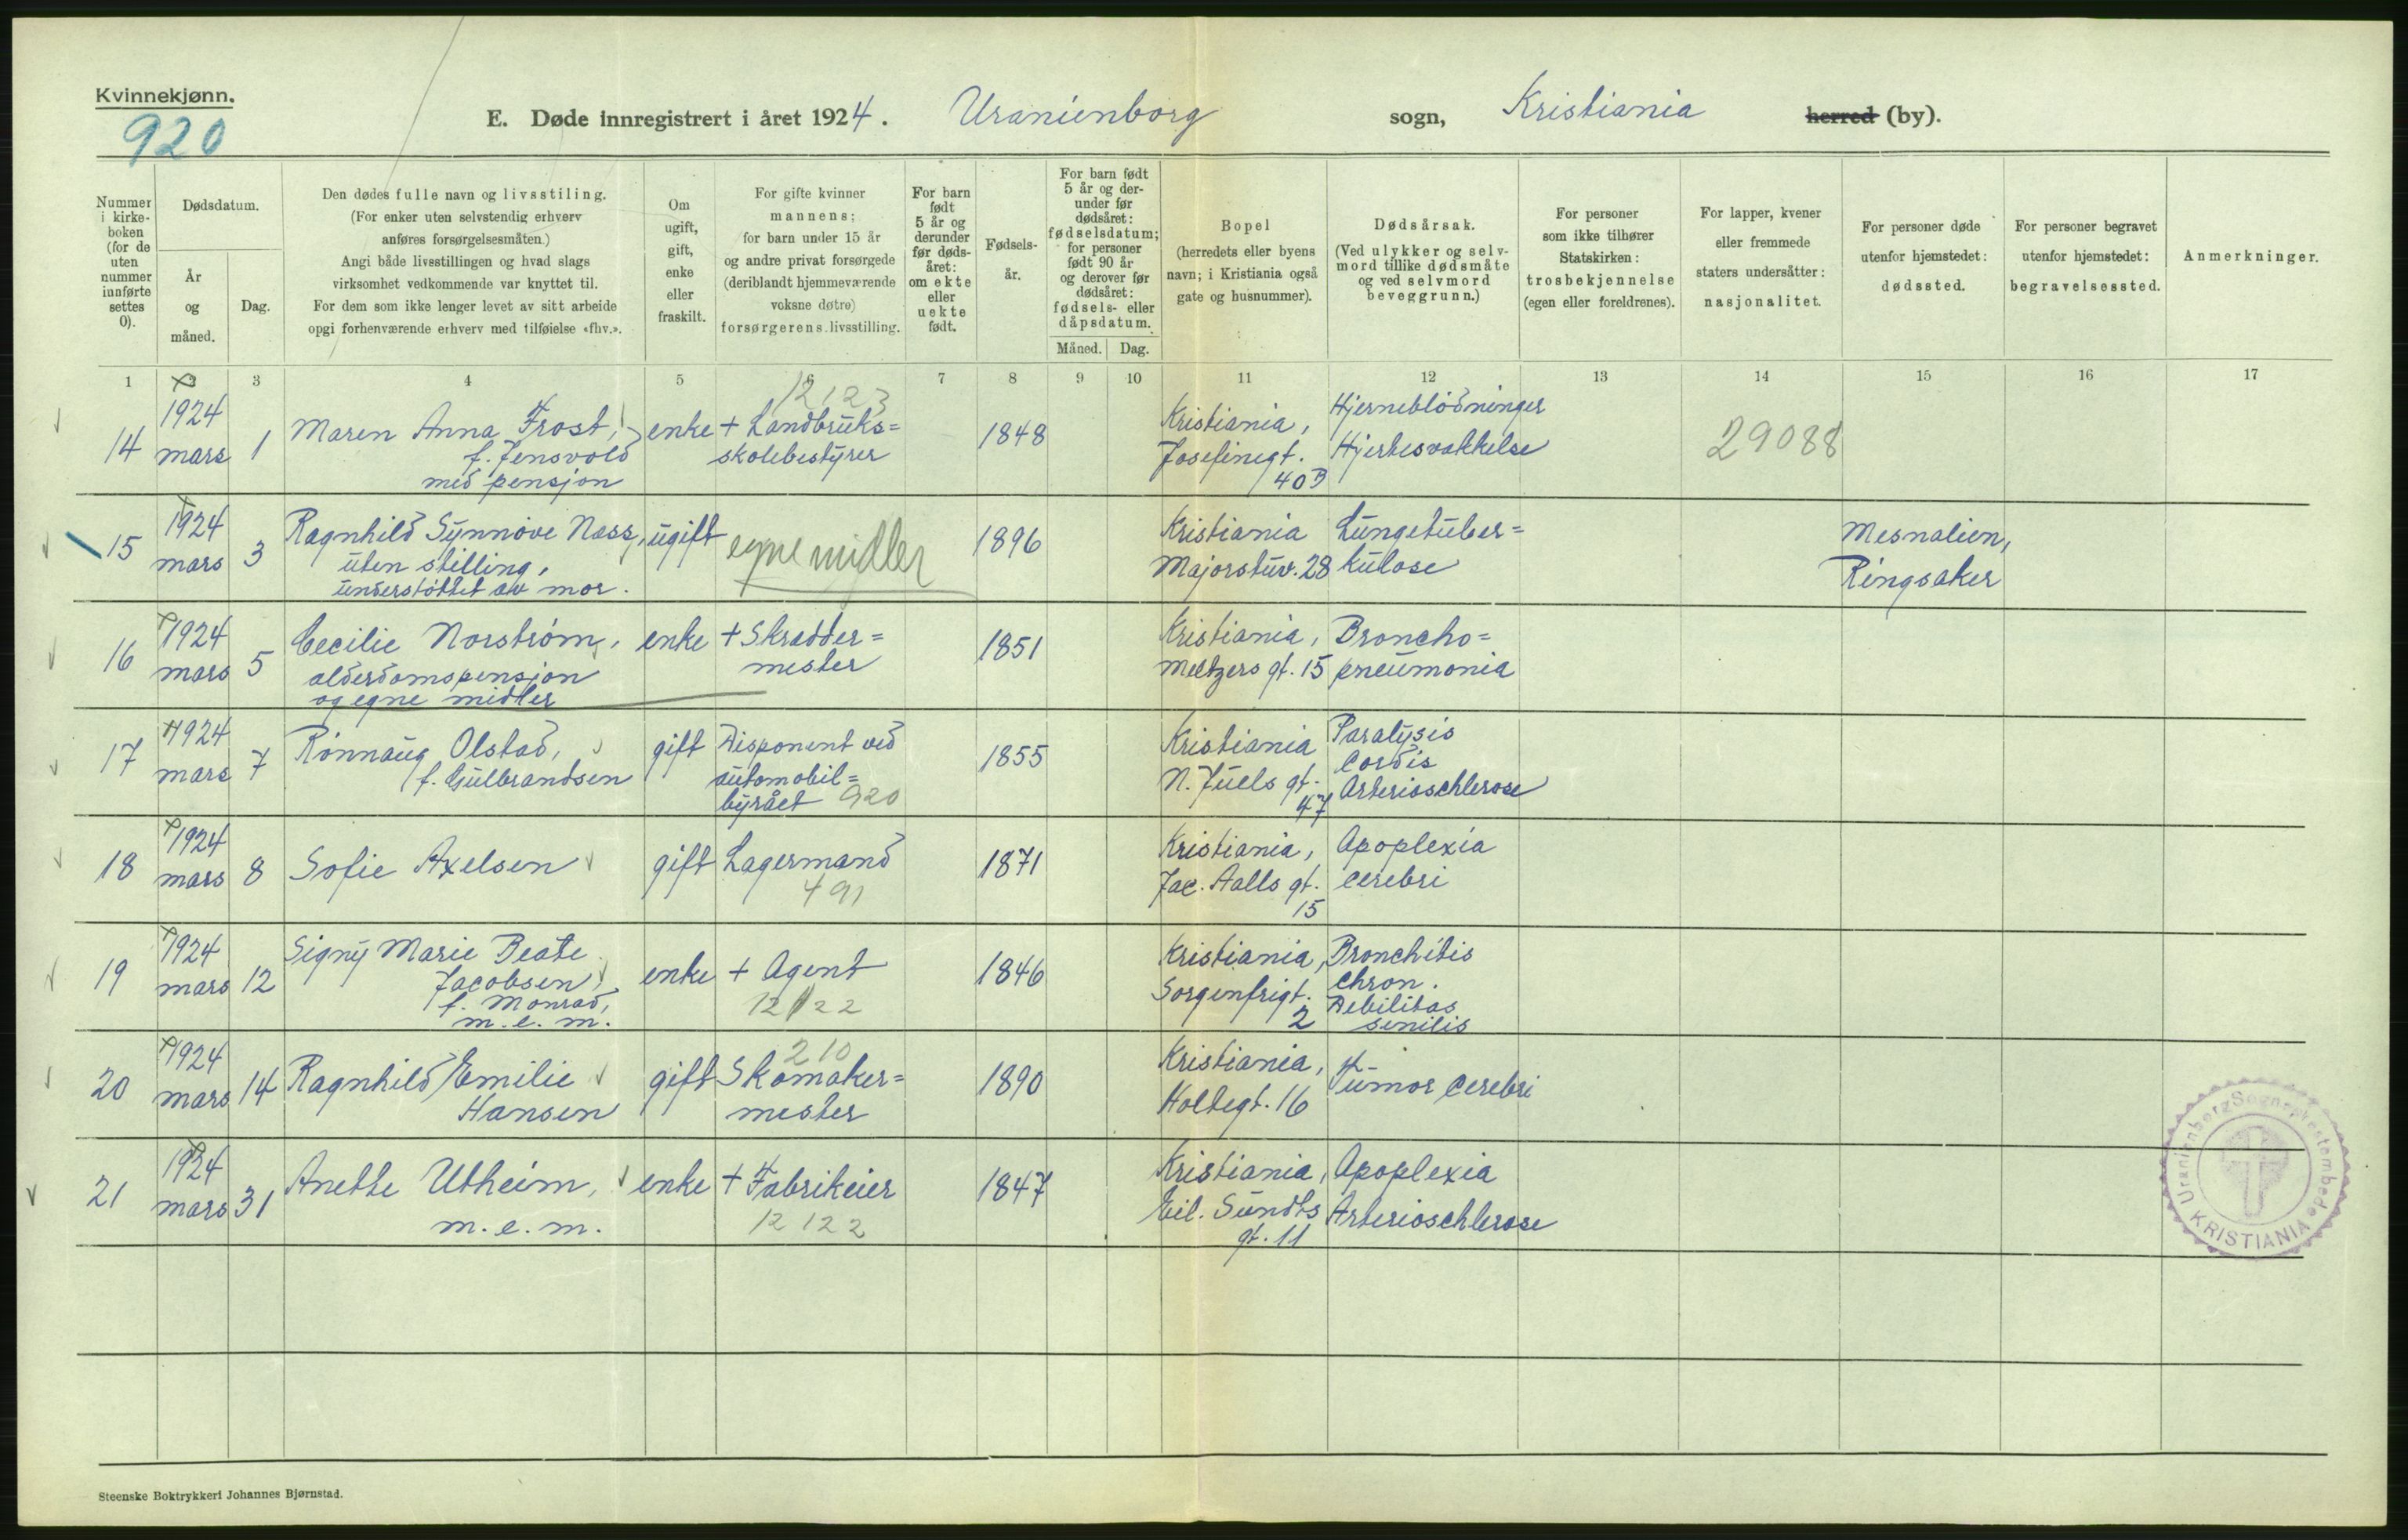 Kvinnekjønn.
920
E. Døde innregistrert i året 1924. Uranienborg sogn, Kristiania herred (by).
Nummer i kirke-boken (for de uten nummer innførte settes 0).
Dødsdatum.
År og måned.
Dag.
Den dødes fulle navn og livsstiling.
(For enker uten selvstendig erhverv
anføres forsørgelsesmåten.)
Angi både livsstillingen og hvad slags
virksomhet vedkommende var knyttet til.
For dem som ikke lenger levet av sitt arbeide
opgi forhenværende erhverv med tilføielse «fhv.».
Om ugift, gift, enke eller fraskilt.
For gifte kvinner
mannens;
for barn under 15 år
og andre privat forsørgede
(deriblandt hjemmeværende
voksne døtre)
forsørgerens livsstilling.
For barn født 5 år og derunder før døds-året: om ekte eller uekte født.
Fødsels-år.
For barn født 5 år og der-under før dødsåret: fødselsdatum; for personer født 90 år og derover før dødsåret: fødsels- eller dåpsdatum.
Måned. Dag.
Bopel
(herredets eller byens
navn; i Kristiania også
gate og husnummer).
Dødsårsak.
(Ved ulykker og selv-
mord tillike dødsmåte
og ved selvmord
beveggrunn.)
For personer
som ikke tilhører
Statskirken:
trosbekjennelse
(egen eller foreldrenes).
For lapper, kvener
eller fremmede
staters undersåtter:
nasjonalitet.
For personer døde
utenfor hjemstedet:
dødssted.
For personer begravet
utenfor hjemstedet:
begravelsessted.
Anmerkninger.
1 2 3 4 5 6 7 8 9 10 11 12 13 14 15 16 17
12123
14 1924 mars 1 Maren Anna Frost,
f. Jensvold
med pensjon
enke + Landbruks=
skolebestyrer
1848
Kristiania,
Josefinegt.
40B
Hjerneblödninger
Hjertesvakkelse
29088
15 1924 mars 3 Ragnhild Synnöve Næss,
uten stilling,
understöttet av mor.
ugift
egne midler
1896
Kristiania
Majorstuv. 28
Lungetuber=
kulose
Mesnalien,
Ringsaker
16 1924 mars 5 Cecilie Norström,
alderdomspensjon
og egne midler
enke + Skredder=
mester
1851
Kristiania,
Meltzers gt. 15
Broncho=
pneumonia
17 1924 mars 7 Rönnaug Olstad,
f. Gulbrandsen
gift Disponent ved
automobil=
byrået 920
1855
Kristiania
N. Juels gt.
47
Paralysis
Cordis
Arterioschlerose
18 1924 mars 8 Sofie Axelsen
gift Lagermand
491
1871
Kristiania,
Jac. Aalls gt.
15
Apoplexia
cerebri
19 1924 mars 12 Signy Marie Beate
Jacobsen
f. Monrad,
m. e. m.
enke + Agent
12122
1846
Kristiania,
Sorgenfrigt.
2
Bronchitis
chron.
Debilitas
senilis
20 1924 mars 14 Ragnhild Emilie
Hansen
gift 210
Skomaker=
mester
1890
Kristiania,
Holtegt. 16
Tumor cerebri
21 1924 mars 31 Anette Utheim,
m. e. m.
enke + Fabrikeier
12122
1847
Kristiania,
Eil. Sundts
gt. 11
Apoplexia
Arterioschlerose
Uranienborg Sogneprestembede
KRISTIANIA
Steenske Boktrykkeri Johannes Bjørnstad.